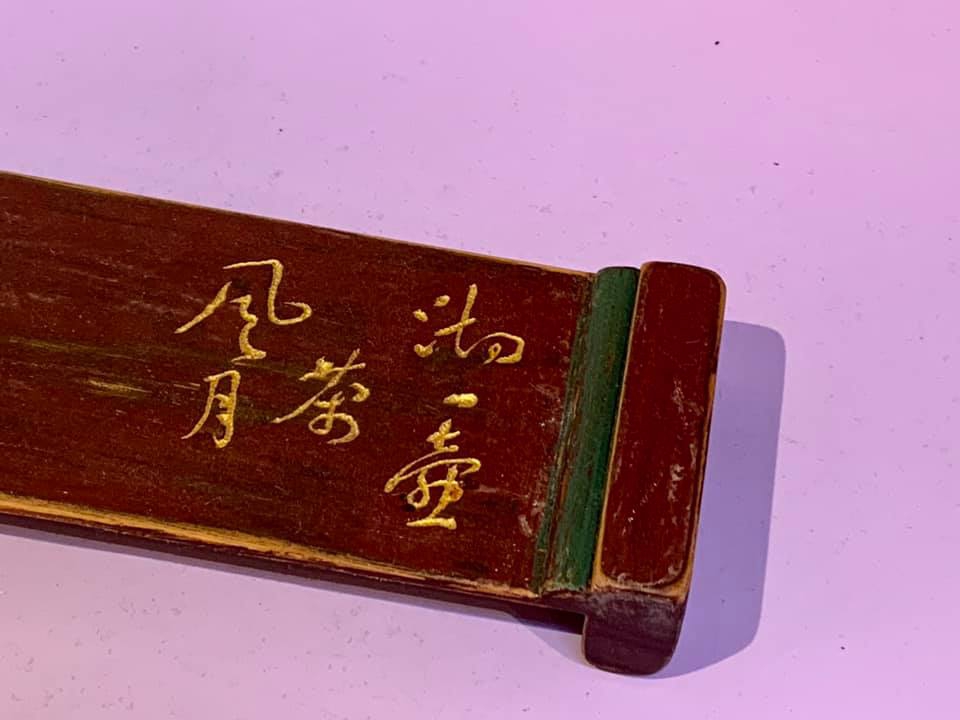 沏一壺
茶
风月